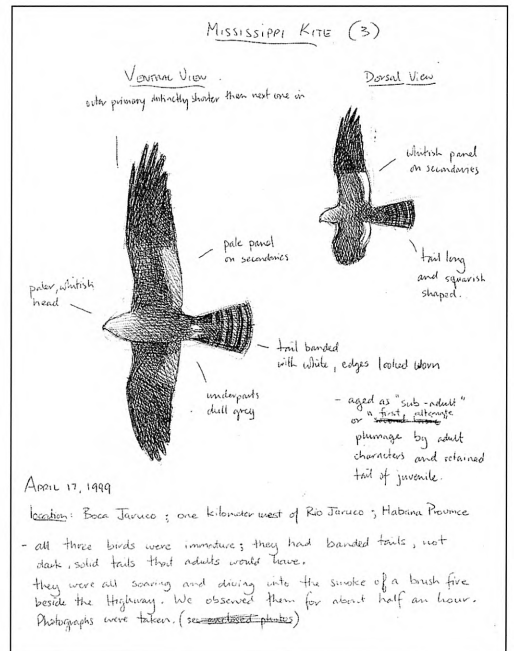 MISSISSIPPI KITE (3)
VENTRAL VIEW
outer primary distinctly shorter than next one in
Dorsal View
whitish panel
on secondaries
tail long
and squarish
shaped.
pale panel
on secondaries
paler, whitish
head
tail banded
with white, edges looked worn
underparts
dull grey
- aged as "sub-adult"
a first, alternate
or
plumage by adult
characters and retained
tail of juvenile.
APRIL 17, 1999
location: Boca Jaruco ; one kilometer west of Rio Jaruco ; Habana Province
- all three birds were immature; they had banded tails, not
dark, solid tails that adults would have.
they were all soaring and diving into the smoke of a brush fire
beside the Highway. We observed them for about half an hour.
Photographs were taken. (see enclosed photos)